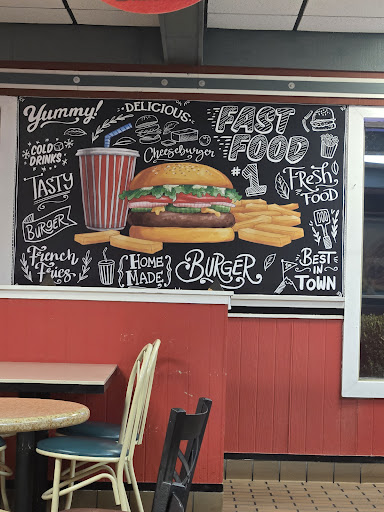 Yummy!
DELICIOUS
FAST
FOOD
#1
COLD
DRINKS
Cheeseburger
TASTY
FRESH
FOOD
BURGER
French
Fries
HOME
MADE
BURGER
BEST
IN
TOWN